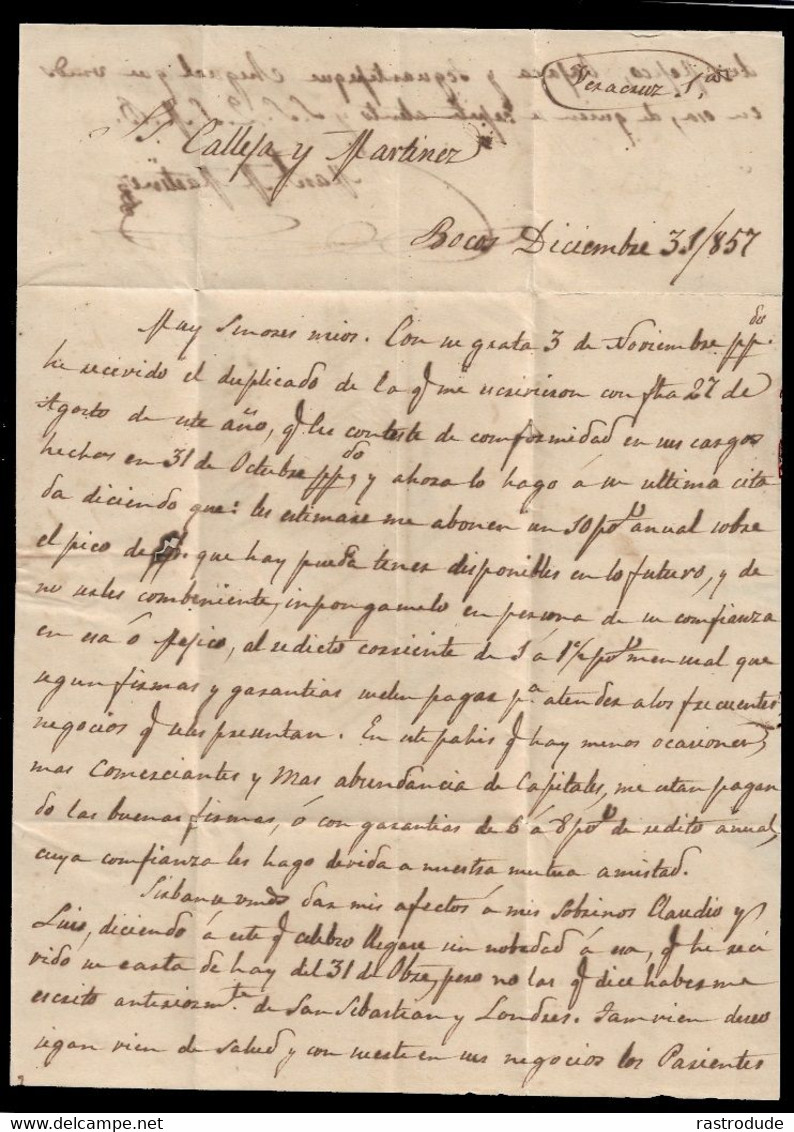 Veracruz S.res
S.S. Calleja y Martinez
Bocos Diciembre 31/857
Muy Senores mios. Con su grata 3 de Noviembre pp.do
he recivido el duplicado de la q.e me escrivieron con fha 27 de
Agosto de este año, q.e les conteste de comformidad en sus cargos
hechos en 31 de Octubre pp.do, y ahora lo hago á su ultima cita
da diciendo que: les estimare me abonen un 10 p% anual sobre
el pico de que hay pueda tener disponibles en lo futuro, y de
no serles combeniente, inpongamelo en persona de su comfianza
en esa ó Mejico, al redicto corriente de 1 á 1½ p% mensual que
segun firmas y garantias suelen pagar p.a atender a los frecuentes
negocios q.e se les presentan. En este pahis q.e hay menos ocasiones,
mas Comerciantes y Mas abundancia de Capitales, me estan pagan
do las buenas firmas, ó con garantias de 6 á 8 p% de redito anual,
cuya comfianza les hago devida a nuestra mutua amistad.
Sirbanse vmds dar mis afectos á mis Sobrinos Claudio y
Luis, diciendo á este q.e celebro llegase sin nobedad á esa, q.e he reci
vido su carta de hay del 31 de Obre, pero no las q.e dice haberme
escrito anteriorm.te de San Sebastian y Londres. Tamvien deseo
sigan vien de Salud y con suerte en sus negocios los Parientes
rastrodude